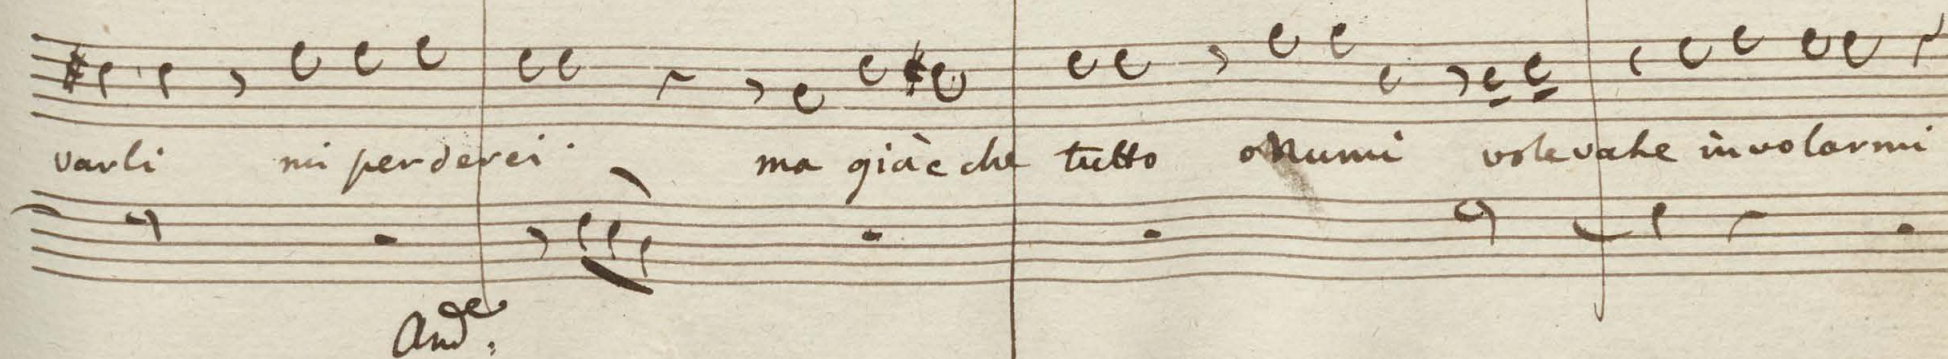 varli mi perderei. ma già che tutto o Numi volevate involarmi
And.e